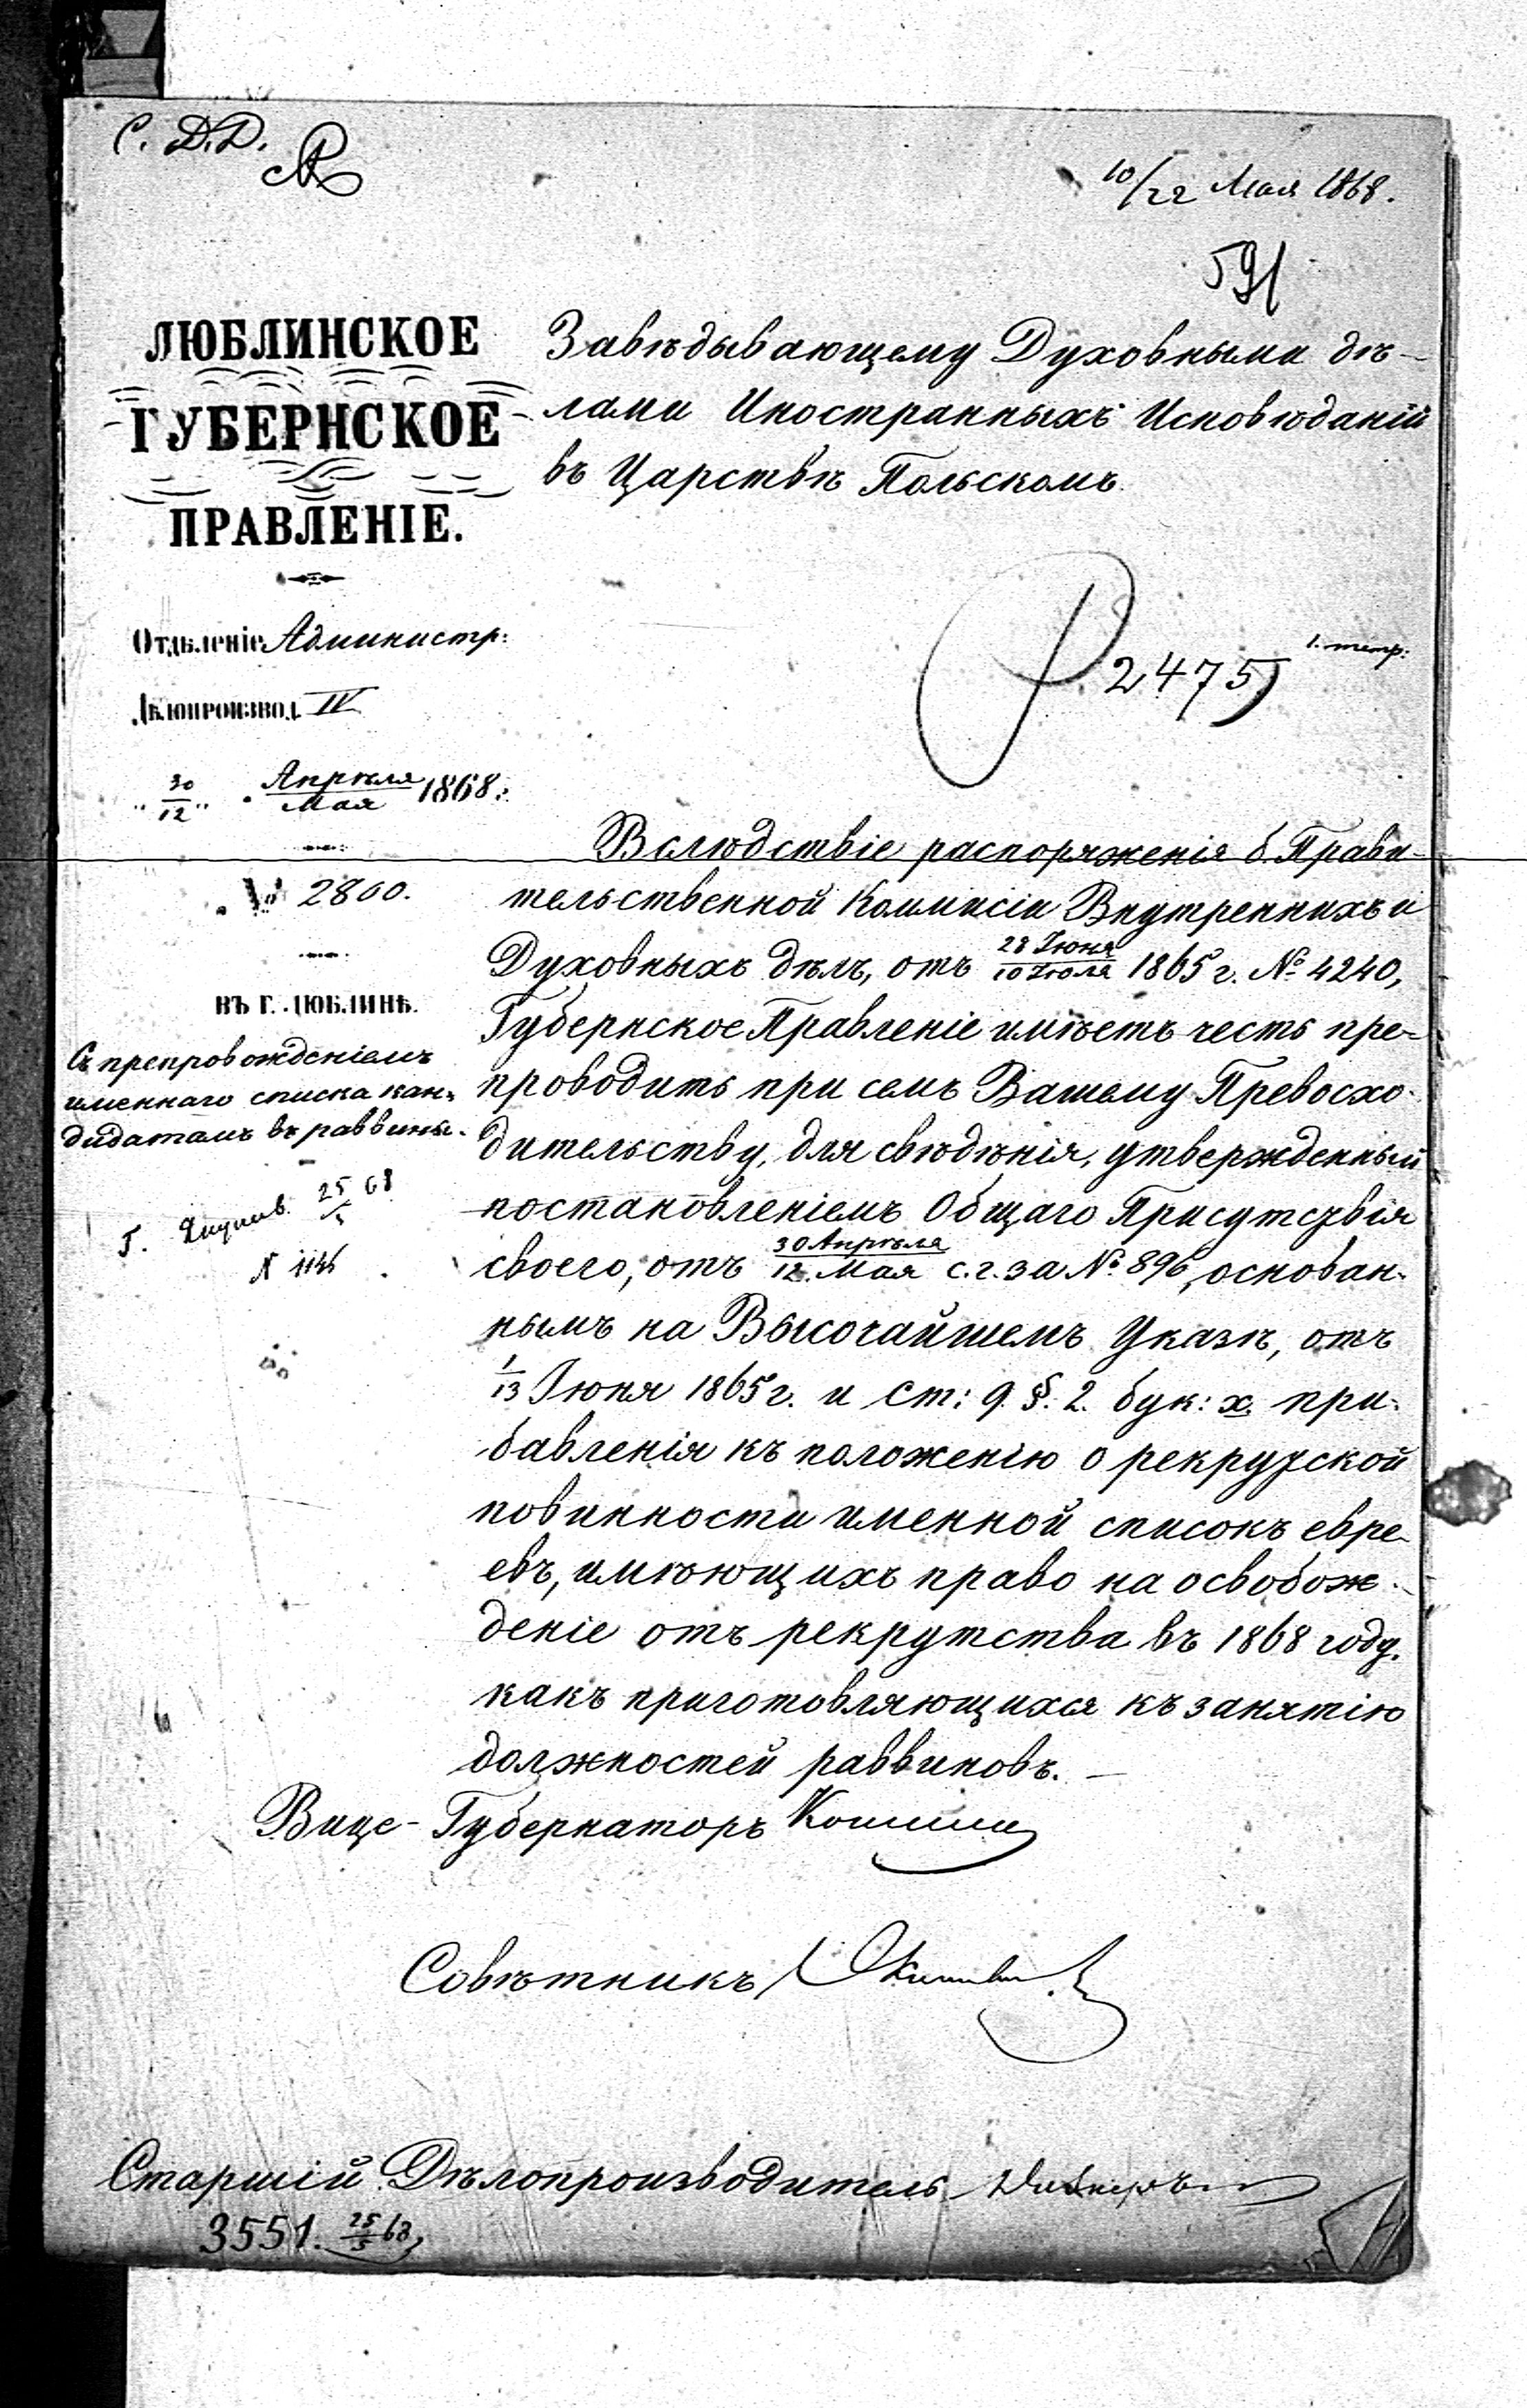 С. Д.Д.
10/22 Мая 1868.
591
ЛЮБЛИНСКОЕ
ГУБЕРНСКОЕ
ПРАВЛЕНІЕ.
Отдѣленіе Администр:
Дѣлопроизвод. IV
"30/12" Апрѣля/Мая 1868 г.
№ 2800.
ВЪ Г. ЛЮБЛИНѢ.
Съ препровожденіемъ
именнаго списка кан-
дидатамъ въ раввины.
25/5 68
N 1146
Завѣдывающему Духовными дѣ-
лами Иностранныхъ Исповѣданій
въ Царствѣ Польскомъ.
2475
Вслѣдствіе распоряженія б. Прави-
тельственной Коммисіи Внутреннихъ и
Духовныхъ дѣлъ, отъ 28 Іюня/10 Іюля 1865 г. № 4240,
Губернское Правленіе имѣетъ честь пре-
проводить при семъ Вашему Превосхо-
дительству, для свѣдѣнія, утвержденный
постановленіемъ Общаго Присутствія
своего, отъ 30 Апрѣля/12 Мая с.г. за № 896, основан-
нымъ на Высочайшемъ Указѣ, отъ
1/13 Іюня 1865 г. и ст: 9. §. 2. бук: х. при-
бавленія къ положенію о рекрутской
повинности именной списокъ евре-
евъ, имѣющихъ право на освобож-
деніе отъ рекрутства въ 1868 году,
какъ приготовляющихся къ занятію
должностей раввиновъ. —
Вице-Губернаторъ
Совѣтникъ
Старшій Дѣлопроизводитель
3551. 25/5 68